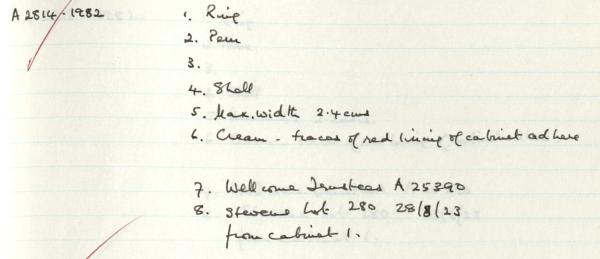 A 2814 - 1982
1. Ring
2. Peru
3.
4. Shell
5. Max. width 2.4 cms
6. Cream - traces of red lining of cabinet adhere
7. Wellcome Trustees A 25390
8. Stevens Lot 280 28/8/23
from cabinet 1.